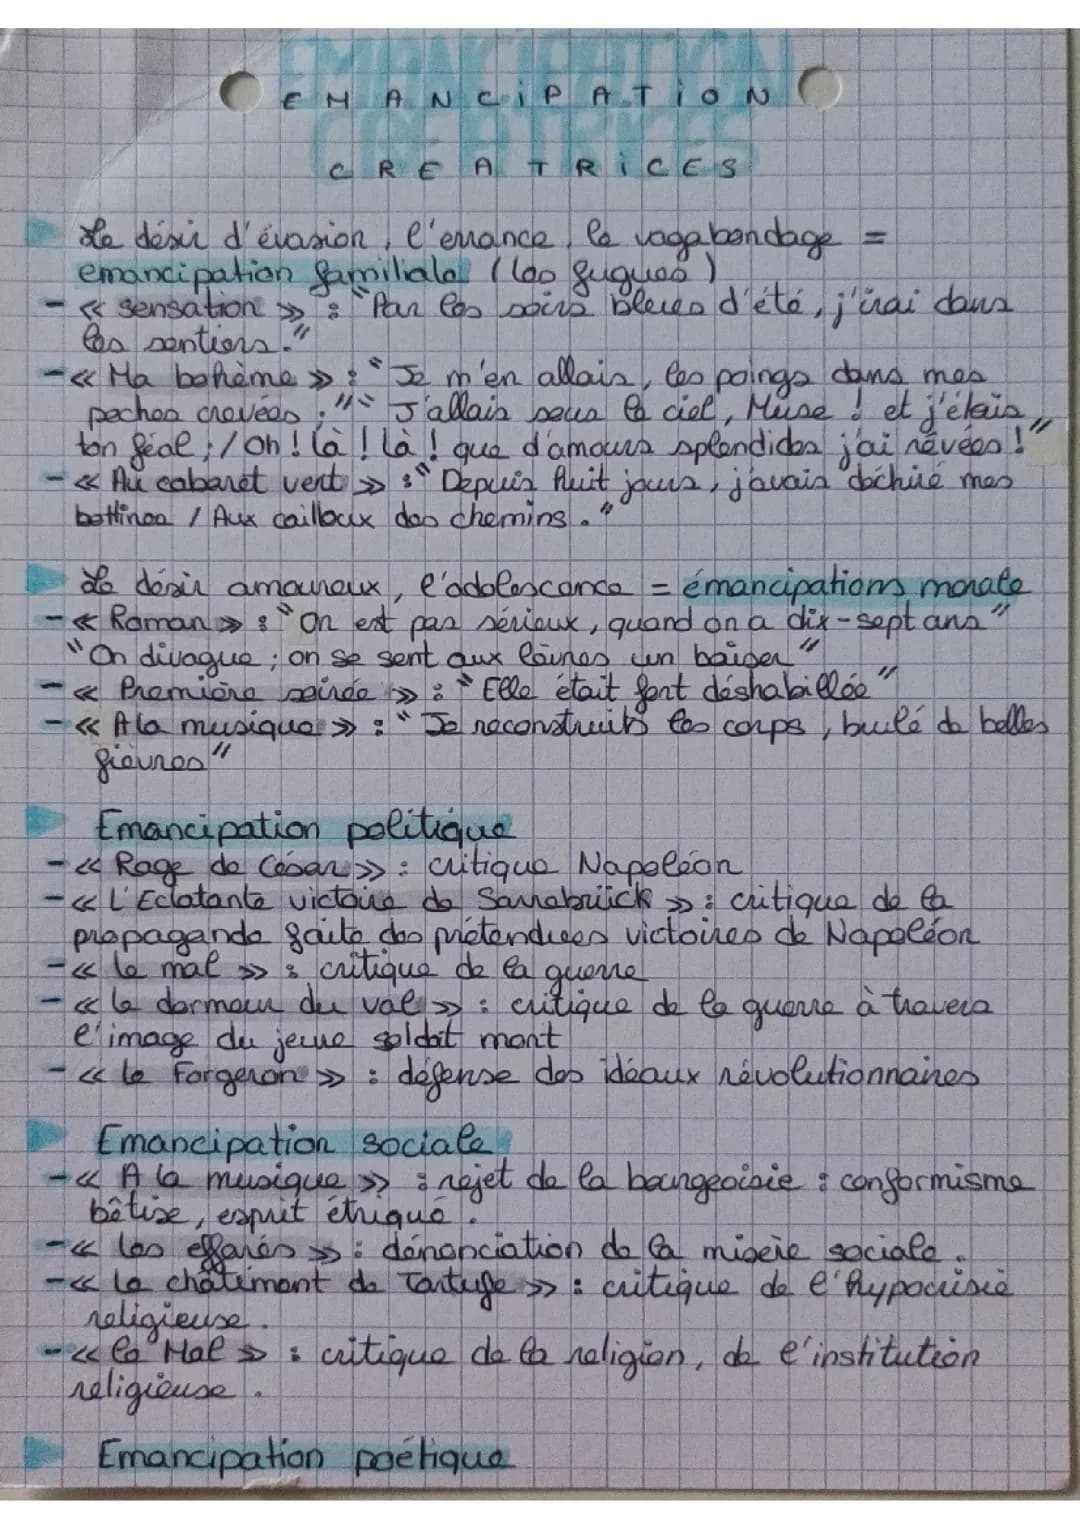 EMANCIPATION
CREATRICES
Le désir d'évasion, l'errance, le vagabondage =
emancipation familiale (les fugues)
- « Sensation » : "Par les soirs bleues d'été, j'irai dans
les sentiers."
- « Ma bohème » : "Je m'en allais, les poings dans mes
poches crevées ;" "J'allais sous le ciel, Muse ! et j'étais
ton féal ; / Oh ! là ! là ! que d'amours splendides j'ai rêvées !"
- « Au cabaret vert » : "Depuis huit jours, j'avais déchiré mes
bottines / Aux cailloux des chemins."
Le désir amoureux, l'adolescence = émancipations morale
- « Roman » : "On est pas sérieux, quand on a dix-sept ans"
"On divague ; on se sent aux lèvres un baiser"
- « Première soirée » : "Elle était fort déshabillée"
- « A la musique » : "Je reconstruits les corps, brulé de belles
fièvres"
Emancipation politique
- « Rage de César » : critique Napoléon
- « L'Eclatante victoire de Sarrebrück » : critique de la
propagande faite des prétendues victoires de Napoléon
- « le mal » : critique de la guerre
- « le dormeur du val » : critique de la guerre à travers
l'image du jeune soldat mort
- « le Forgeron » : défense des idéaux révolutionnaires
Emancipation sociale
- « A la musique » : rejet de la bourgeoisie : conformisme
bêtise, esprit étriqué.
- « les effarés » : dénonciation de la misère sociale.
- « Le châtiment de Tartufe » : critique de l'hypocrisie
religieuse.
- « le Mal » : critique de la religion, de l'institution
religieuse.
Emancipation poétique